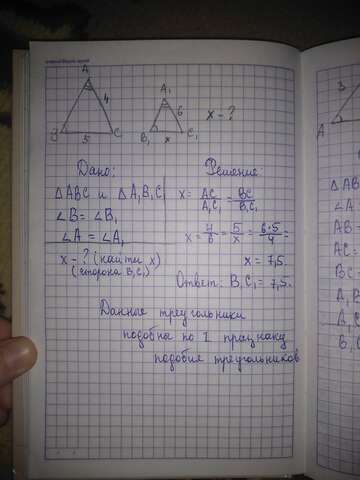 A
4
B
5
C
A₁
6
B₁
x
C₁
x - ?
Дано:
△ABC и △A₁B₁C₁
∠B = ∠B₁
∠A = ∠A₁
x - ? (найти x)
(сторона B₁C₁)
Решение
x = AC/A₁C₁ = BC/B₁C₁
x = 4/6 = 5/x = 6·5/4 =
x = 7,5.
Ответ: B₁C₁ = 7,5.
Данные треугольники
подобны по 1 признаку
подобия треугольников
3
A
△AB
∠A
AB =
AC =
BC =
A₁B
A₁C
B₁C